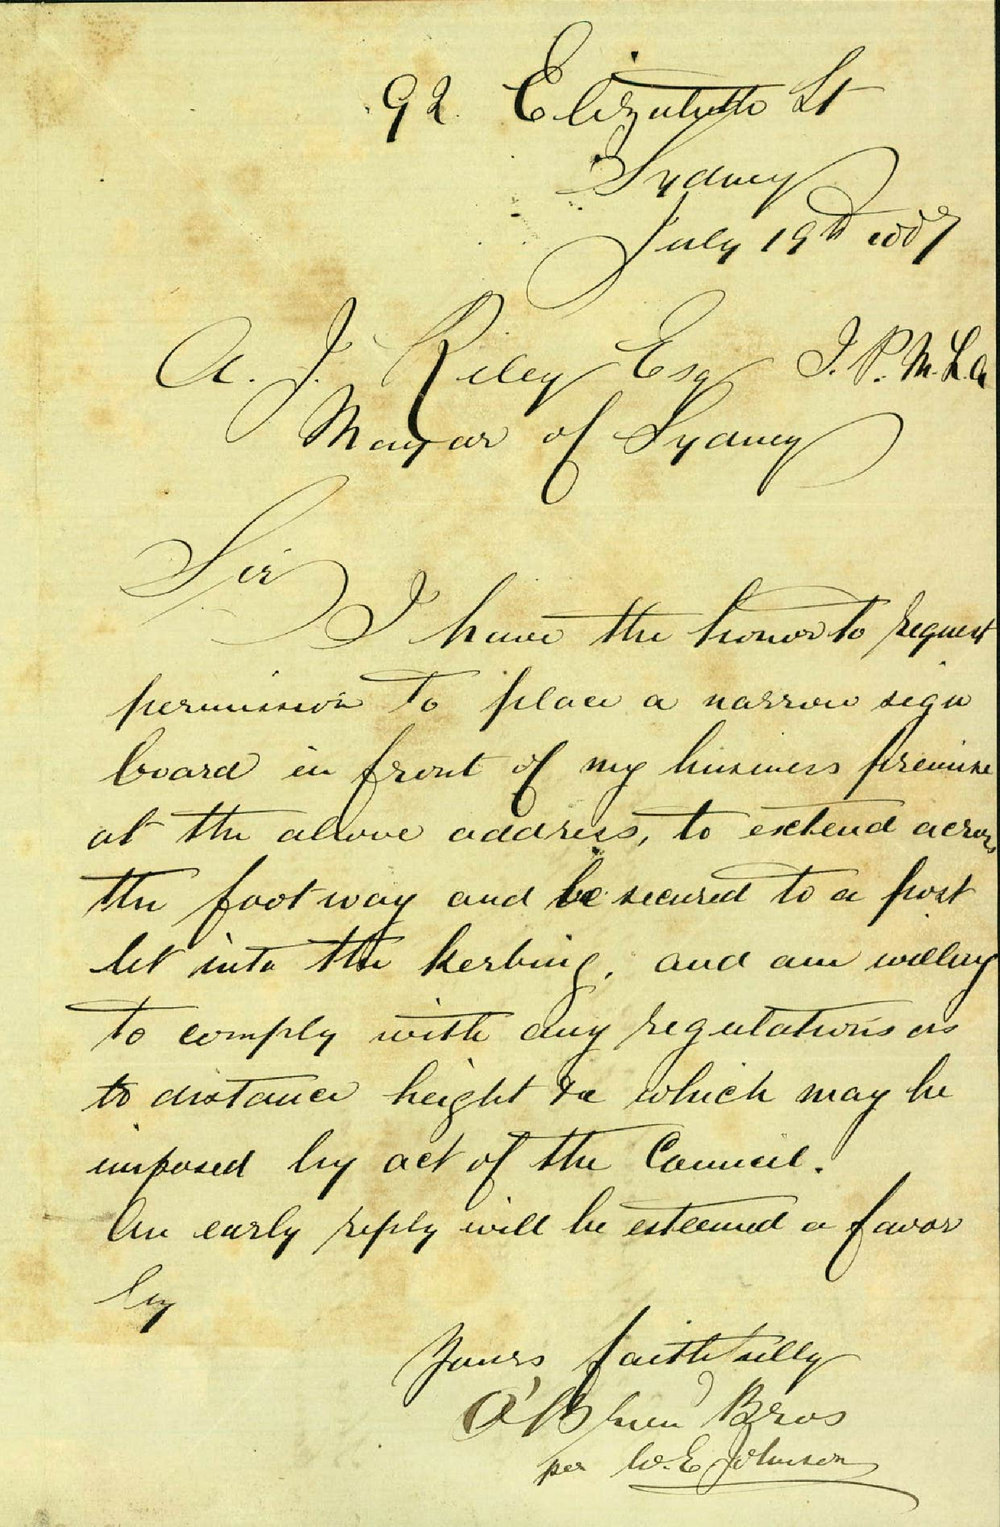 92 Elizabeth St
Sydney
July 19th 1887
A. J. Riley Esq J.P. M.L.A
Mayor of Sydney
Sir
I have the honor to request
permission to place a narrow sign
board in front of my business premise
at the above address, to extend across
the footway and be secured to a post
let into the kerbing, and am willing
to comply with any regulations as
to distance height &c which may be
imposed by act of the Council.
An early reply will be esteemed a favor
by
Yours faithfully
O'Brien Bros
per W. E. Johnson